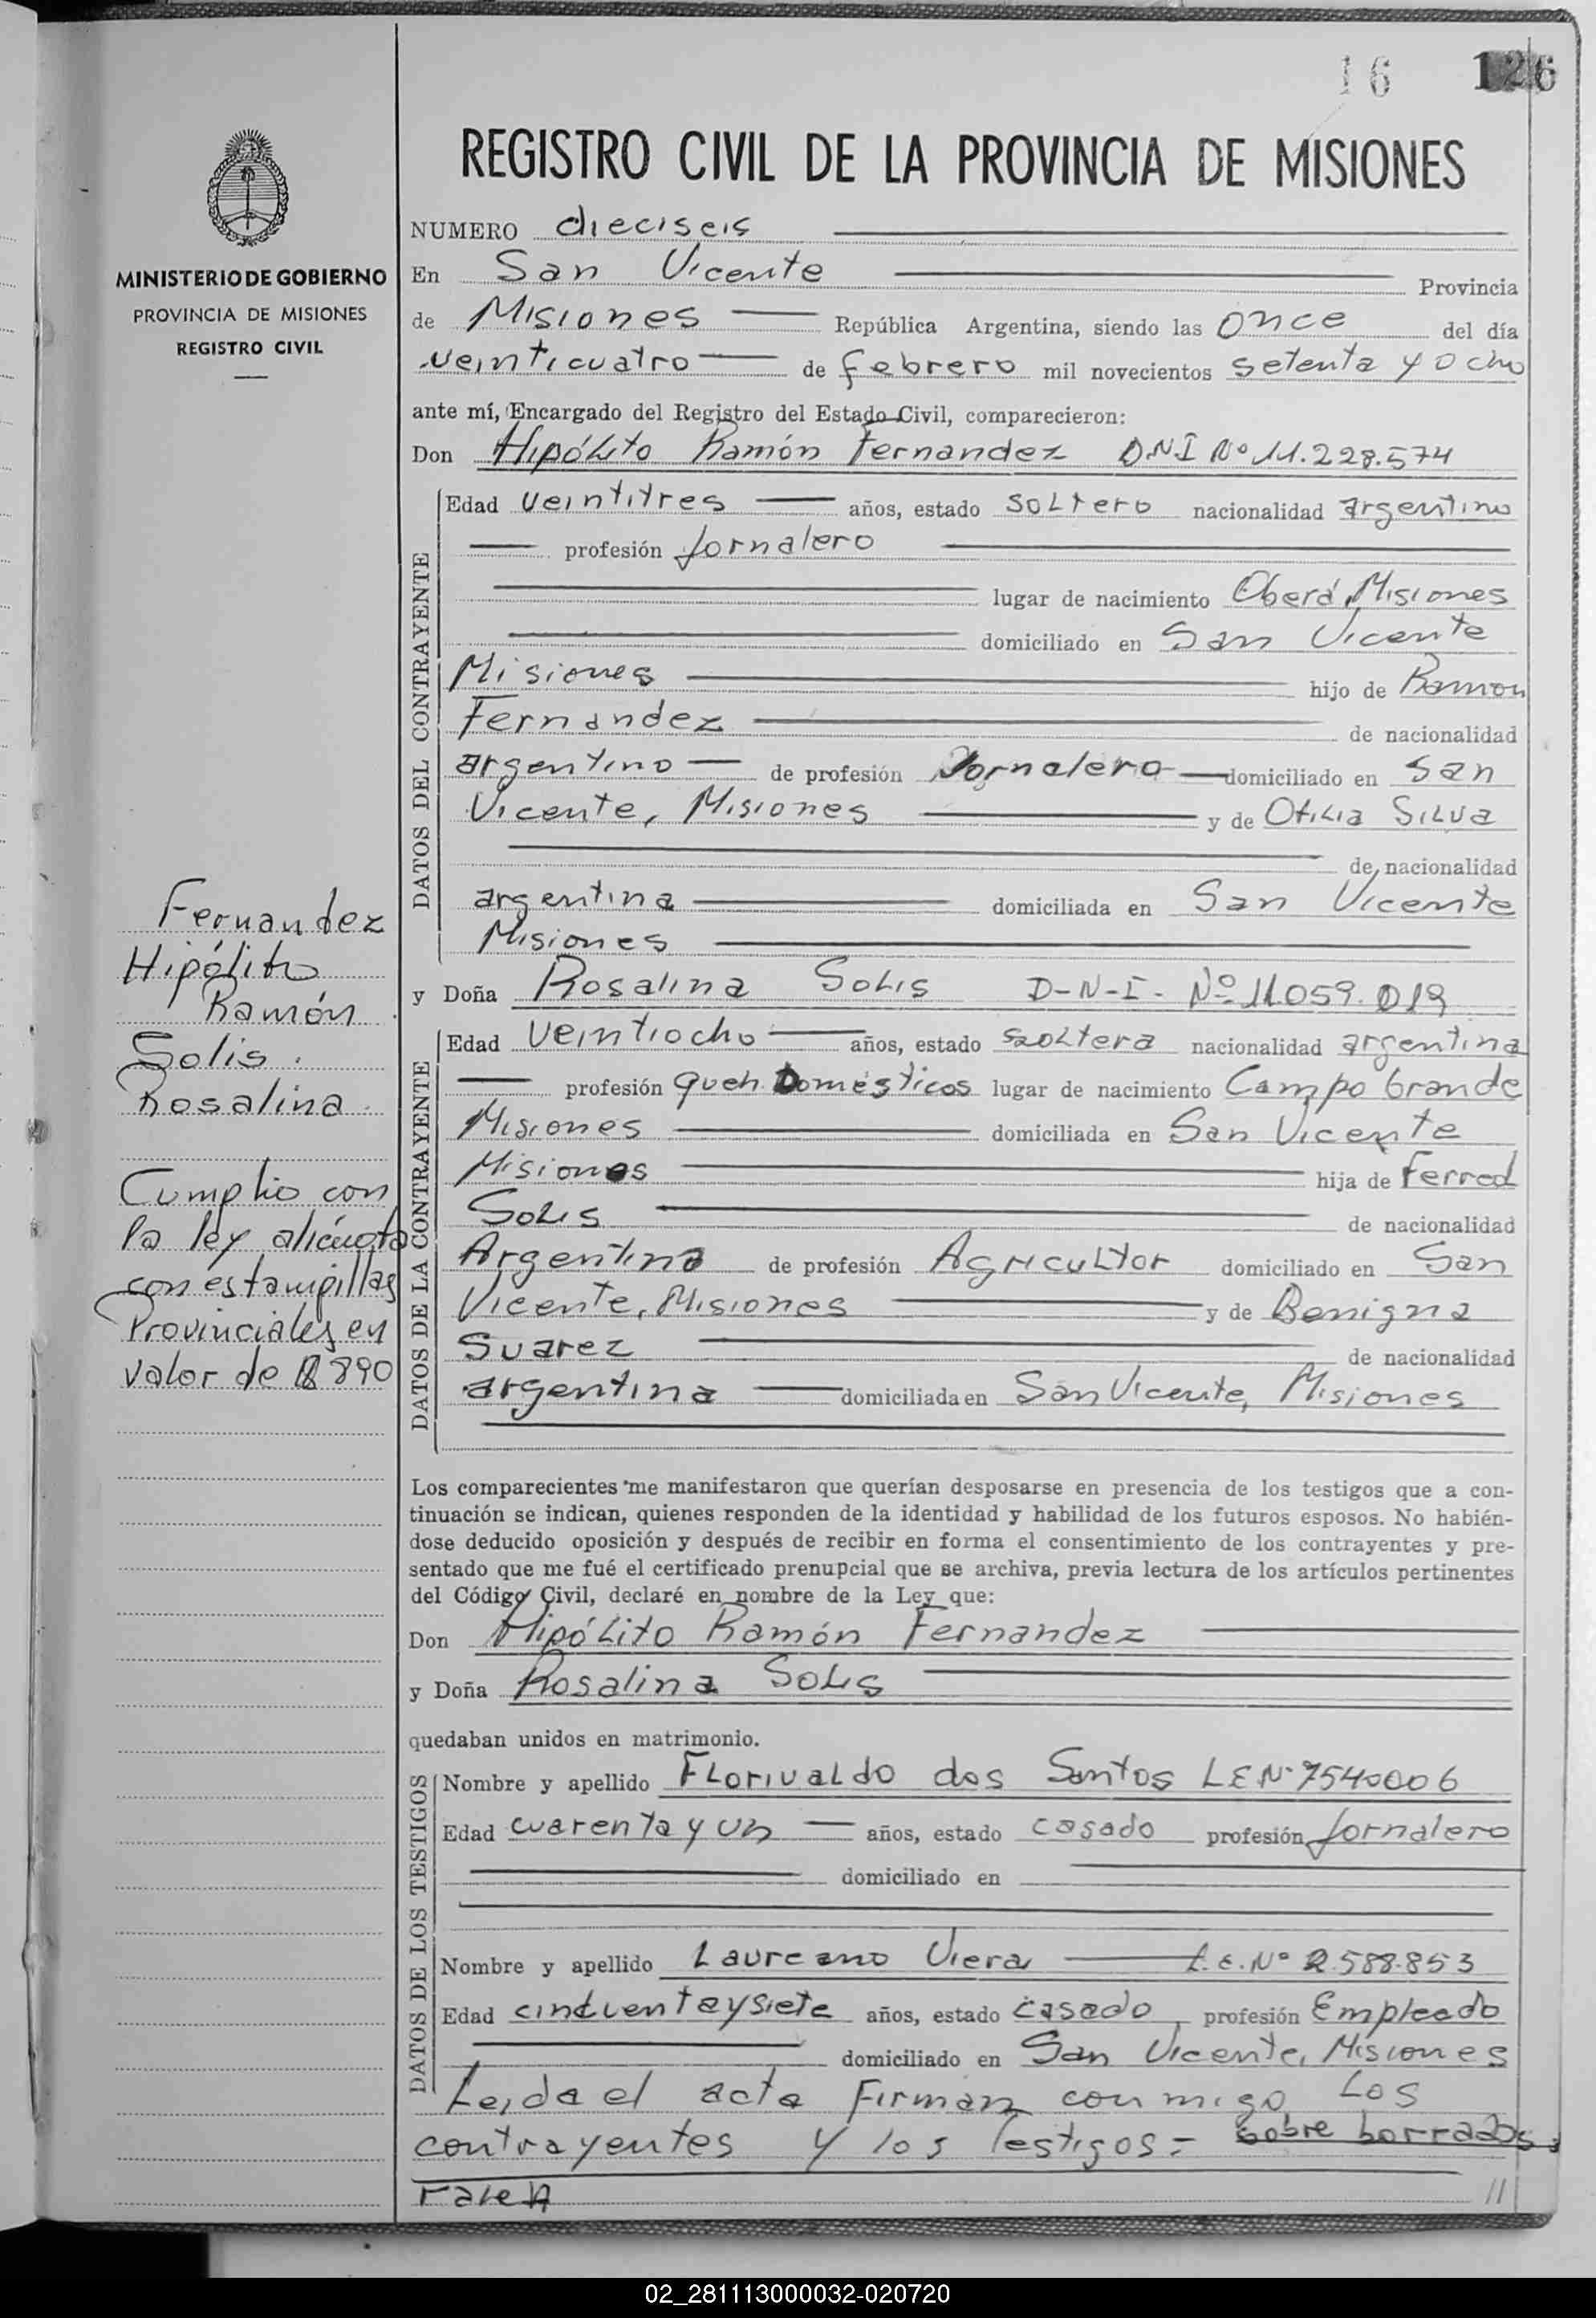 16 126
REGISTRO CIVIL DE LA PROVINCIA DE MISIONES
MINISTERIO DE GOBIERNO
PROVINCIA DE MISIONES
REGISTRO CIVIL
NUMERO dieciseis
En San Vicente Provincia
de Misiones República Argentina, siendo las once del día
veinticuatro de febrero mil novecientos setenta y ocho
ante mí, Encargado del Registro del Estado Civil, comparecieron:
Don Hipólito Ramón Fernandez DNI Nº 11.228.574
DATOS DEL CONTRAYENTE
Edad veintitres años, estado soltero nacionalidad argentino
profesión Jornalero
lugar de nacimiento Oberá, Misiones
domiciliado en San Vicente
Misiones hijo de Ramon
Fernandez de nacionalidad
argentino de profesión Jornalero domiciliado en San
Vicente, Misiones y de Otilia Silva
de nacionalidad
argentina domiciliada en San Vicente
Misiones
y Doña Rosalina Solis D-N-I- Nº 11.059.019
DATOS DE LA CONTRAYENTE
Edad veintiocho años, estado soltera nacionalidad argentina
profesión queh. Domésticos lugar de nacimiento Campo Grande
Misiones domiciliada en San Vicente
Misiones hija de Ferred
Solis de nacionalidad
Argentina de profesión Agricultor domiciliado en San
Vicente, Misiones y de Benigna
Suarez de nacionalidad
argentina domiciliada en San Vicente, Misiones
Fernandez
Hipólito
Ramón
Solis.
Rosalina
Cumplio con
la ley alicuota
con estampillas
Provinciales en
valor de $ 890
Los comparecientes me manifestaron que querían desposarse en presencia de los testigos que a con-
tinuación se indican, quienes responden de la identidad y habilidad de los futuros esposos. No habién-
dose deducido oposición y después de recibir en forma el consentimiento de los contrayentes y pre-
sentado que me fué el certificado prenupcial que se archiva, previa lectura de los artículos pertinentes
del Código Civil, declaré en nombre de la Ley que:
Don Hipólito Ramón Fernandez
y Doña Rosalina Solis
quedaban unidos en matrimonio.
DATOS DE LOS TESTIGOS
Nombre y apellido Florivaldo dos Santos LE Nº 7540006
Edad cuarenta y un años, estado casado profesión Jornalero
domiciliado en
Nombre y apellido Laureano Viera L.E. Nº 2.588.853
Edad cincuentaysiete años, estado casado profesión Empleado
domiciliado en San Vicente, Misiones
Leida el acta Firman conmigo Los
contrayentes y los Testigos = Sobre borrados:
//
02_281113000032-020720